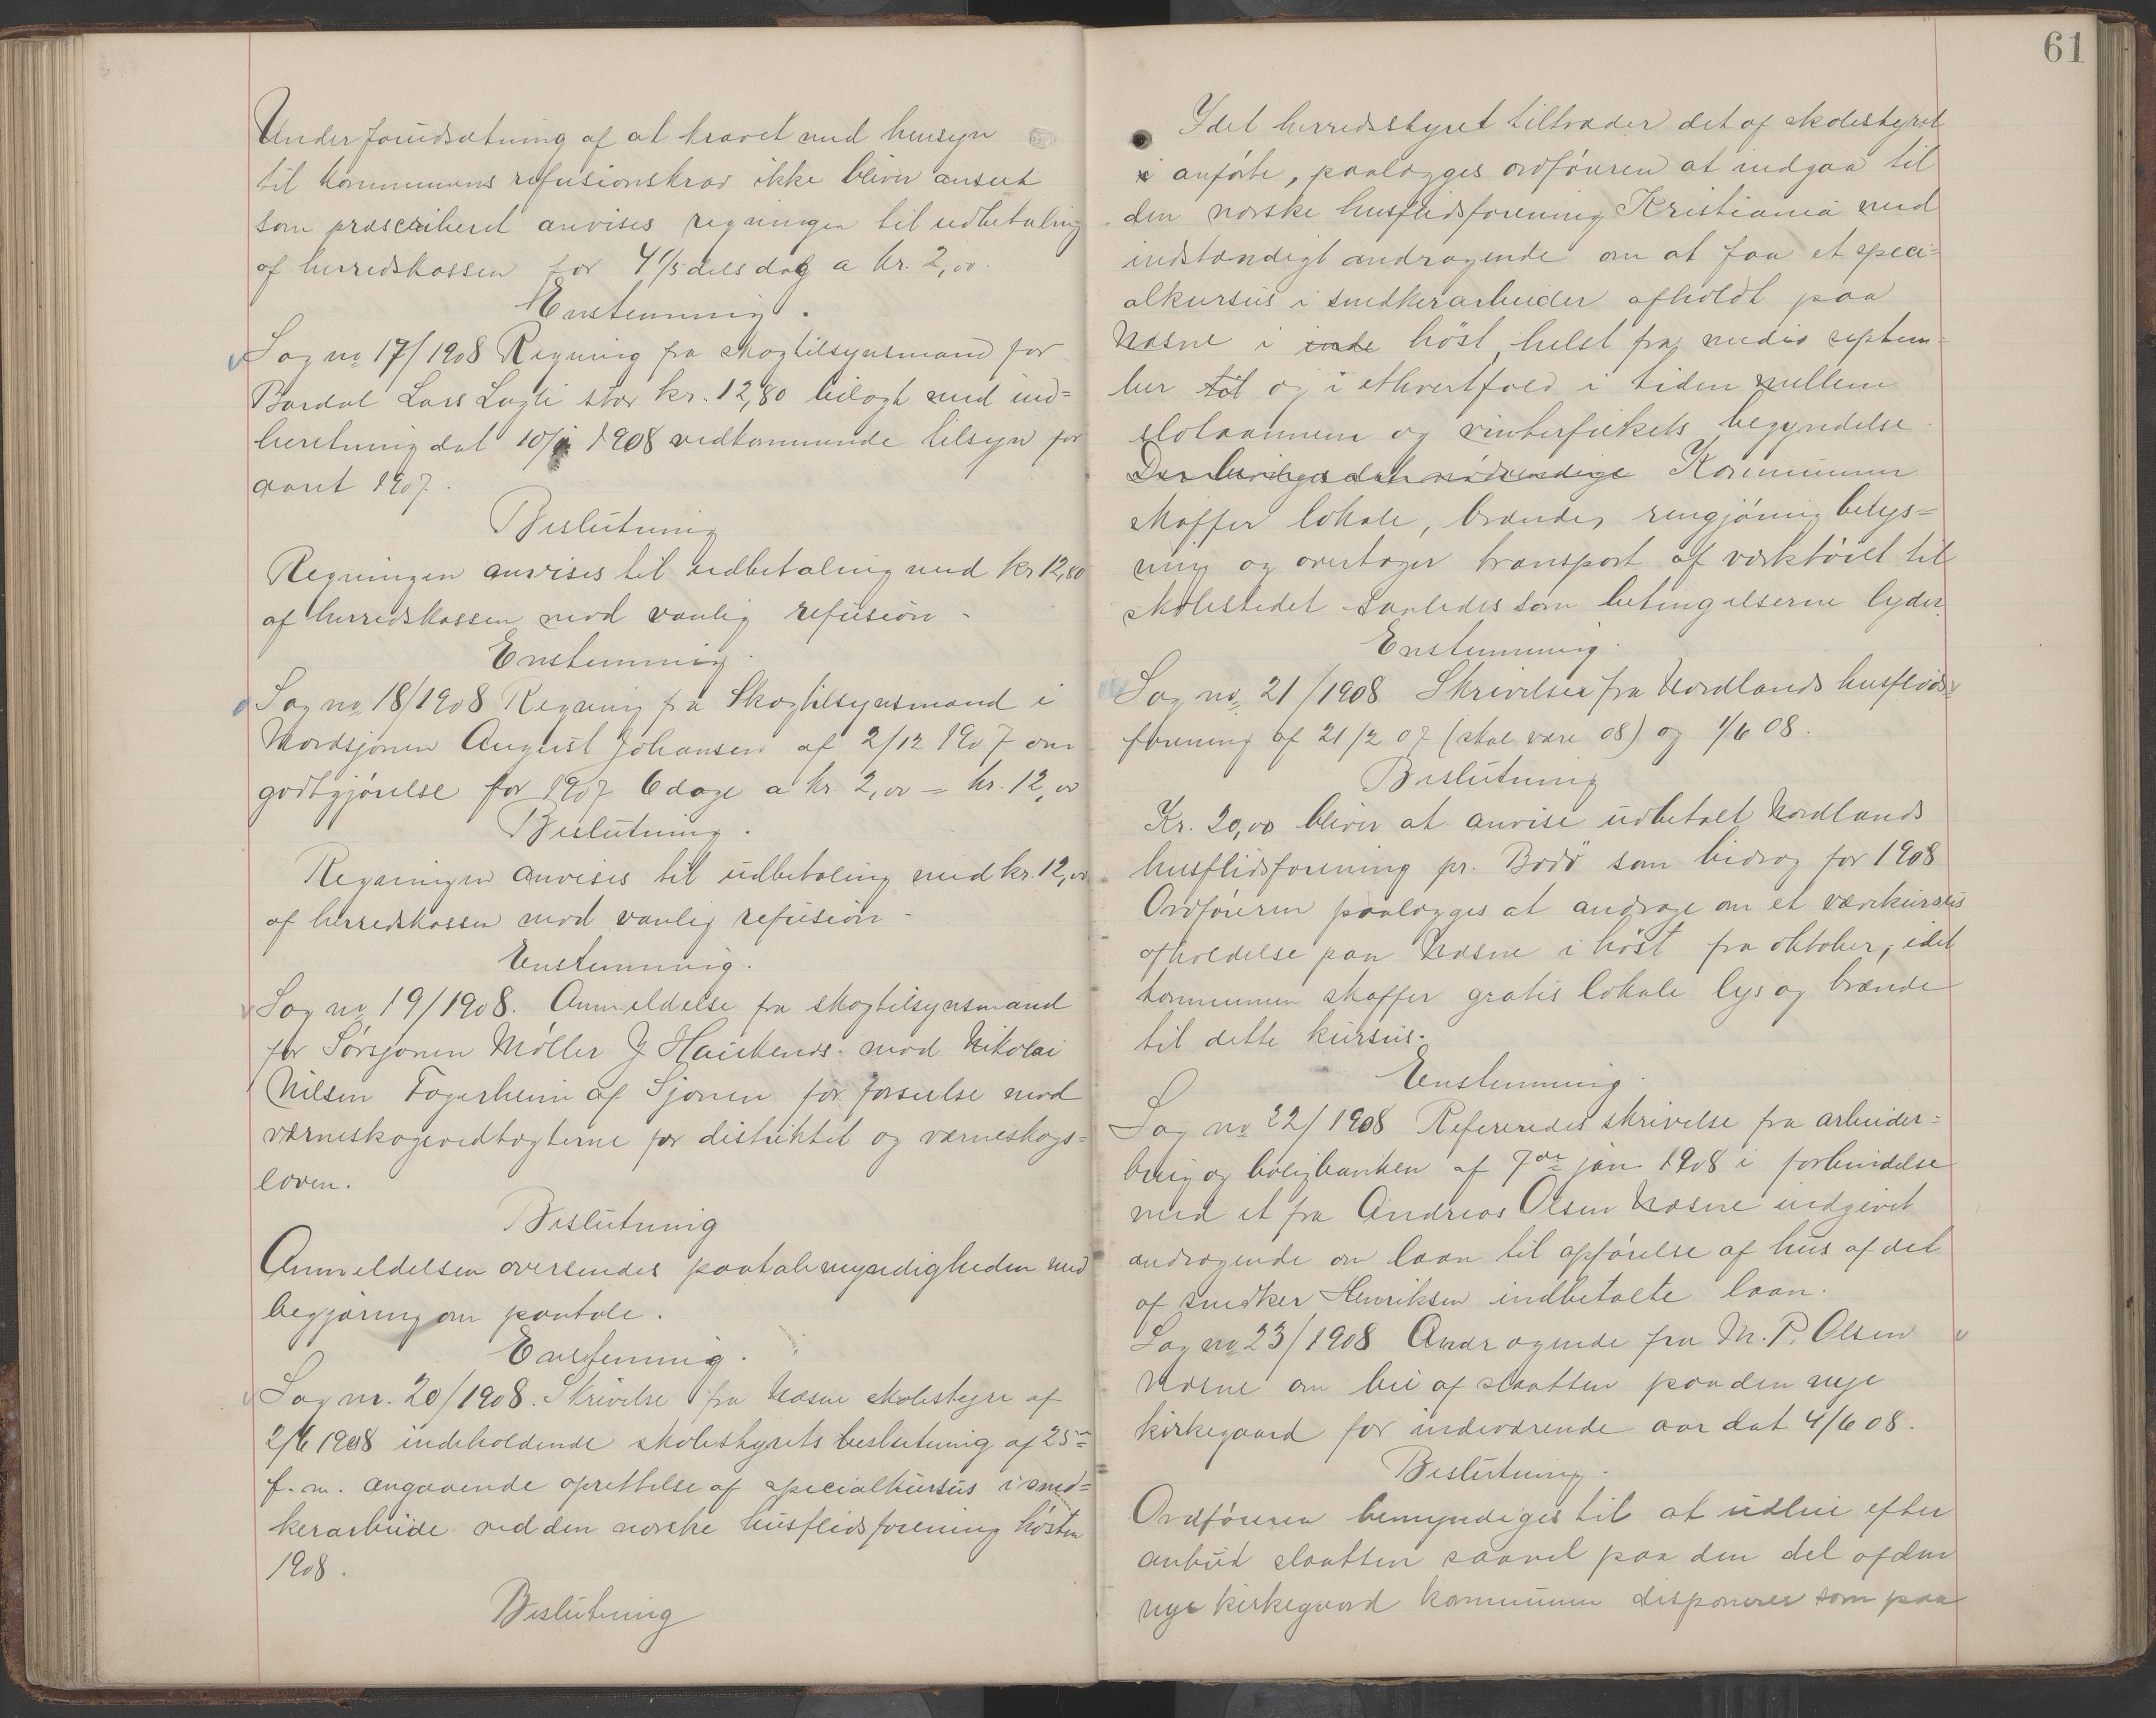 Under forudsætning af at kravet med hensyn
til kommunens refusionskrav ikke bliver anseet
som præscriberet anvises regningen til udbetaling
af herredskassen for 4 1/5 dels dag a kr. 2,00.
Enstemmig.
Sag no 17/1908 Regning fra skogtilsynsmand for
Bardal Lars Lagli stor kr. 12,80 bilagt med ind=
beretning dat 10/1 1908 vedkommende tilsyn for
aaret 1907.
Beslutning
Regningen anvises til udbetaling med kr 12,80
af herredskassen mod vanlig refusion -
Enstemmig.
Sag no 18/1908 Regning fra Skogtilsynsmand i
Nordsjonen August Johansen af 2/12 1907 om
godtgjørelse for 1907 6 dage a kr. 2,00 = kr. 12,00
Beslutning.
Regningen anvises til udbetaling med kr. 12,00
af herredskassen mod vanlig refusion -
Enstemmig.
Sag no 19/1908. Anmeldelse fra skogtilsynsmand
for Sørsjonen Møller J mod Nikolai
Nilsen Fagerheim af Sjonen for forseelse mod
værneskogvedtægterne for distriktet og værneskogs=
loven.
Beslutning
Anmeldelsen oversendes paatalemyndigheden med
begjæring om paatale.
Enstemmig.
Sag nr. 20/1908. Skrivelse fra Næsne skolestyre af
2/6 1908 indeholdende skolestyrets beslutning af 25
f. m. angaaende oprettelse af specialkursus i sned=
kerarbeide ved den norske husflidsforening høsten
1908.
Beslutning
61
Idet herredsstyret tiltræder det af skolestyret
anførte, paalægges ordføreren at indgaa til
den norske husflidsforening Kristiania med
indstændigt andragende om at faa et speci=
alkursus i snedkerarbeider afholdt paa
Næsne i inde høst, helst fra medio septem=
ber til og i ethvertfald i tiden mellem
slotaannen og vinterfiskets begyndelse.
Der bevilges det nødvendige Kommunen
skaffer lokale, brænde, rengjøring belys=
ning og overtager transport af værktøiet til
skolestedet saaledes som betingelserne lyder.
Enstemmig.
Sag no 21/1908 Skrivelser fra Nordlands husflids
forening af 21/2 07 (skal være 08) og 1/6 08.
Beslutning
Kr. 20,00 bliver at anvise udbetalt Nordlands
husflidsforening pr. Bodö som bidrag for 1908
Ordføreren paalægges at andrage om et vævekursus
afholdelse paa Næsne i høst fra oktober, idet
kommunen skaffer gratis lokale lys og brænde
til dette kursus.
Enstemmig.
Sag no 22/1908 Refereredes skrivelse fra arbeider=
brug og boligbanken af 7de jan 1908 i forbindelse
med et fra Andreas Olsen Næsne indgivet
andragende om laan til opførelse af hus af det
af snedker Henriksen indbetalte laan.
Sag no 23/1908 Andragende fra M. P. Olsen
Næsne om leie af slaatten paa den nye
kirkegaard for indeværende aar dat 4/6 08.
Beslutning.
Ordføreren bemyndiges til at udleie efter
anbud slaatten saavel paa den del af den
nye kirkegaard kommunen disponerer som paa